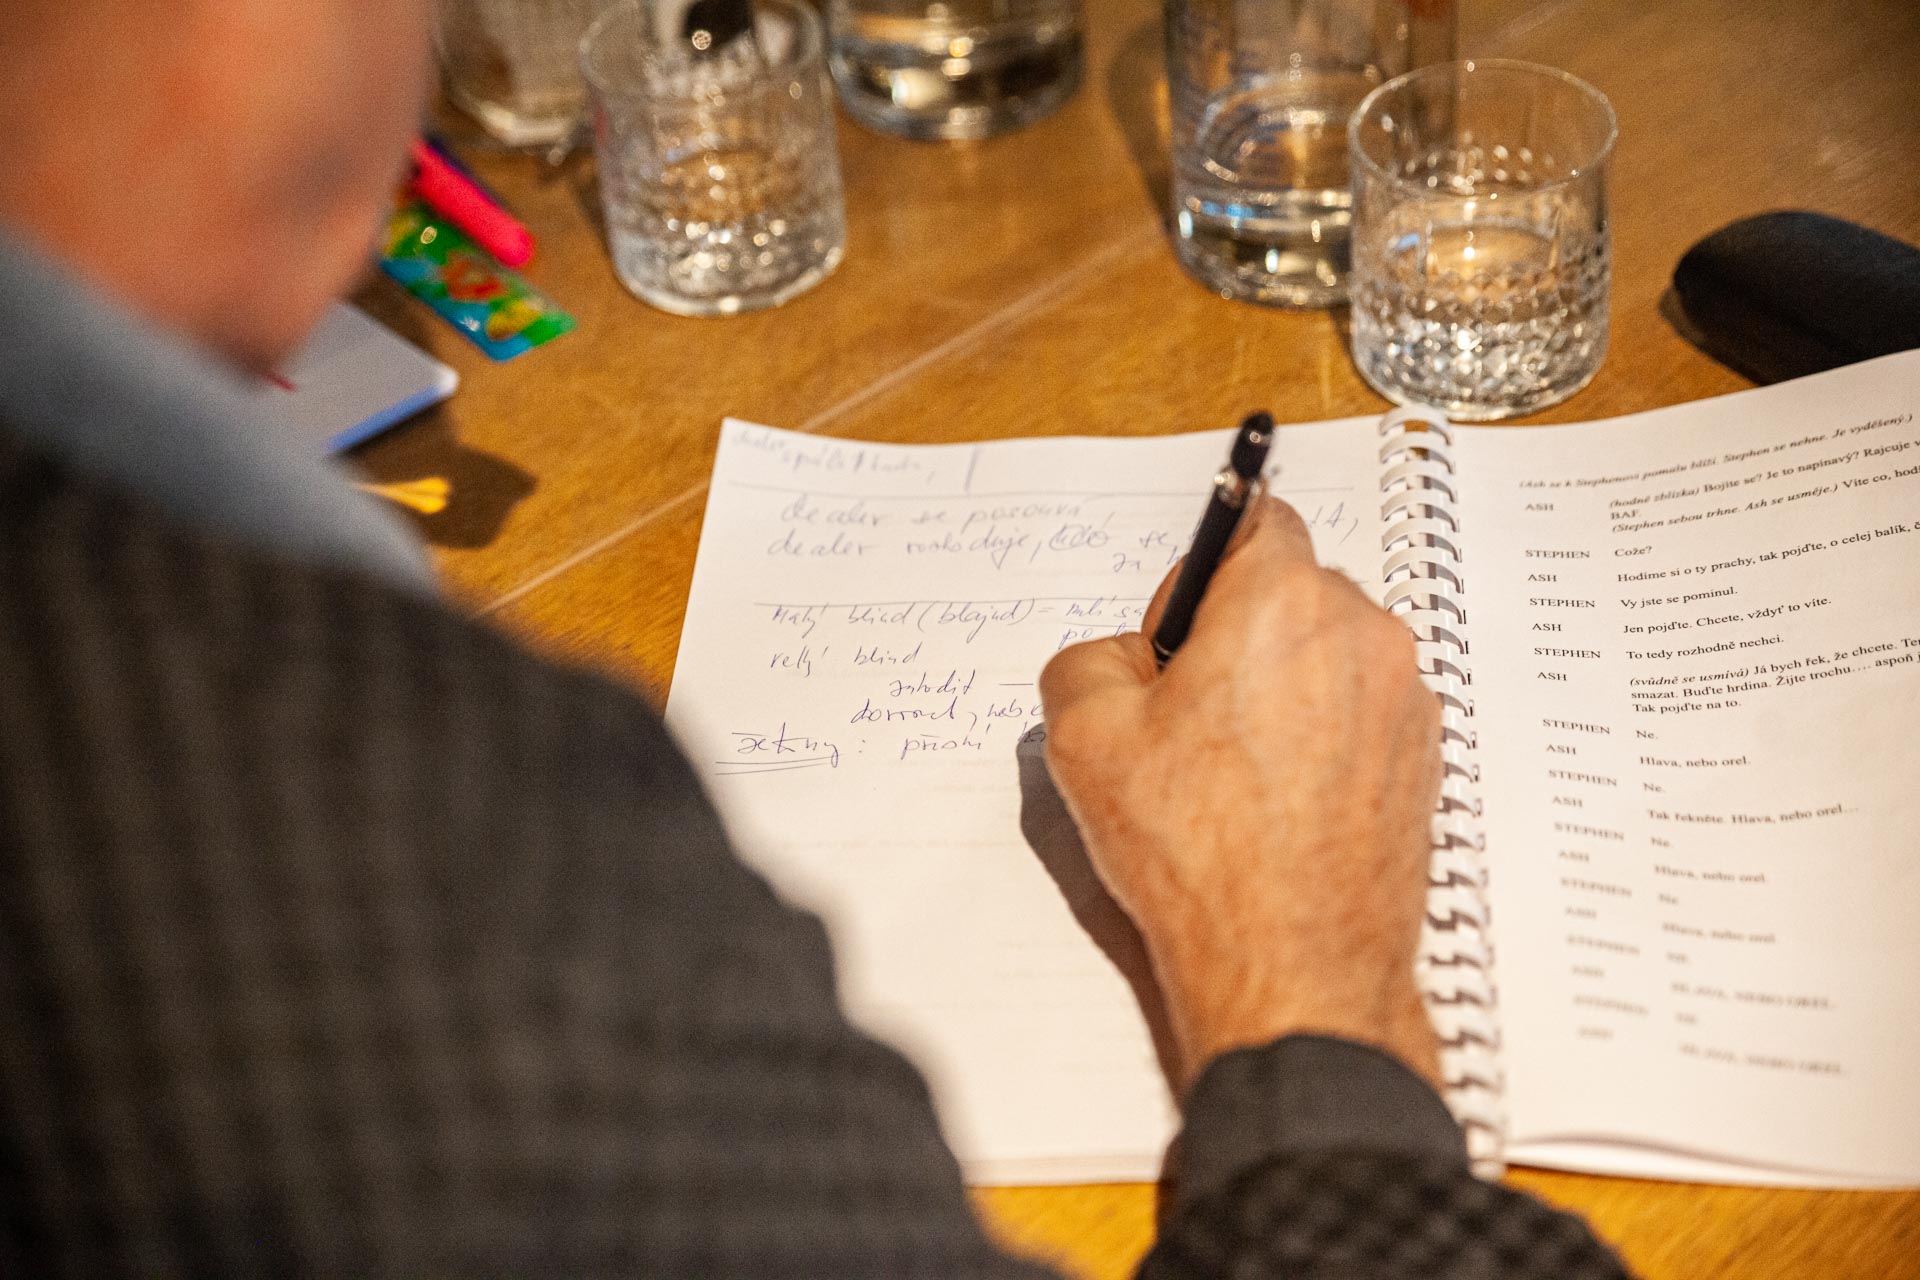 dealer
dealer se posouvá
dealer rozhoduje, se,
za
malý blind (blajnd) = malá
velký blind
zahodit —
dorovnat, nebo
žetony: přesný
(Ash se k Stephenovi pomalu blíží. Stephen se nehne. Je vyděšený.)
ASH (hodně zblízka) Bojíte se? Je to napínavý? Rajcuje
BAF.
(Stephen sebou trhne. Ash se usměje.) Víte co,
STEPHEN Cože?
ASH Hodíme si o ty prachy, tak pojďte, o celej balík,
STEPHEN Vy jste se pominul.
ASH Jen pojďte. Chcete, vždyť to víte.
STEPHEN To tedy rozhodně nechci.
ASH (svůdně se usmívá) Já bych řek, že chcete.
smazat. Buďte hrdina. Žijte trochu…. aspoň
Tak pojďte na to.
STEPHEN Ne.
ASH Hlava, nebo orel.
STEPHEN Ne.
ASH Tak řekněte. Hlava, nebo orel…
STEPHEN Ne.
ASH Hlava, nebo orel.
STEPHEN Ne.
ASH Hlava, nebo orel.
STEPHEN NE.
ASH HLAVA, NEBO OREL.
STEPHEN NE.
ASH HLAVA, NEBO OREL.